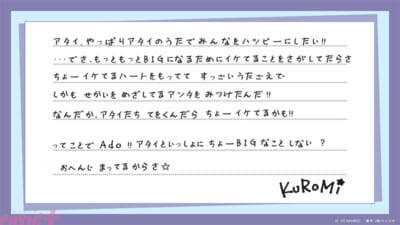 アタイ、やっぱりアタイのうたでみんなをハッピーにしたい!!
…でさ、もっともっとBIGになるためにイケてることをさがしてたらさ
ちょーイケてるハートをもってて すっごいうたごえで
しかも せかいを めざしてるアンタを みつけたんだ!!
なんだか、アタイたち てをくんだら ちょーイケてるかも!!
ってことで Ado !! アタイといっしょに ちょーBIGなこと しない ?
おへんじ まってるからさ☆
KUROMI